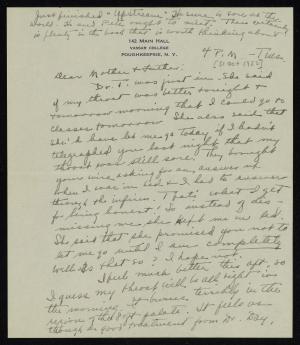 Just finished "Upstream". He sure is sore at the
world. He and Bill ought to meet. There certainly
is plenty in the book that is worth thinking about!
142 MAIN HALL
VASSAR COLLEGE
POUGHKEEPSIE, N. Y.
4 P.M. - Tues.
[31 Oct 1922]
Dear Mother & Father:
Dr. T. was just in. She said
if my throat was better tonight &
tomorrow morning that I could go to
classes tomorrow. She also said that
she'd have let me go today if I hadn't
telegraphed you last night that my
throat was still sore. They brought
your wire asking for an answer
when I was in bed & I had to answer
through the infirm. That's what I get
for being honest! So instead of dis-
missing me she kept me in bed.
She said that she promised you not to
let me go until I am completely
well. Is that so? I hope not.
I feel much better this aft. so
I guess my throat will be all right in
the morning. It burns terribly in the
region of the soft palate. It feels as
though a good treatment from Dr. Day,